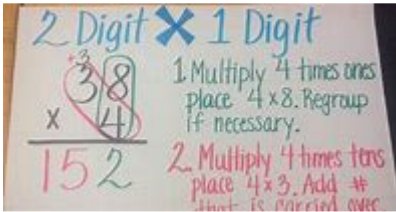 2 Digit X 1 Digit
+3
38
x 4
152
1. Multiply 4 times ones
place 4x8. Regroup
if necessary.
2. Multiply 4 times tens
place 4x3. Add #
that is carried over